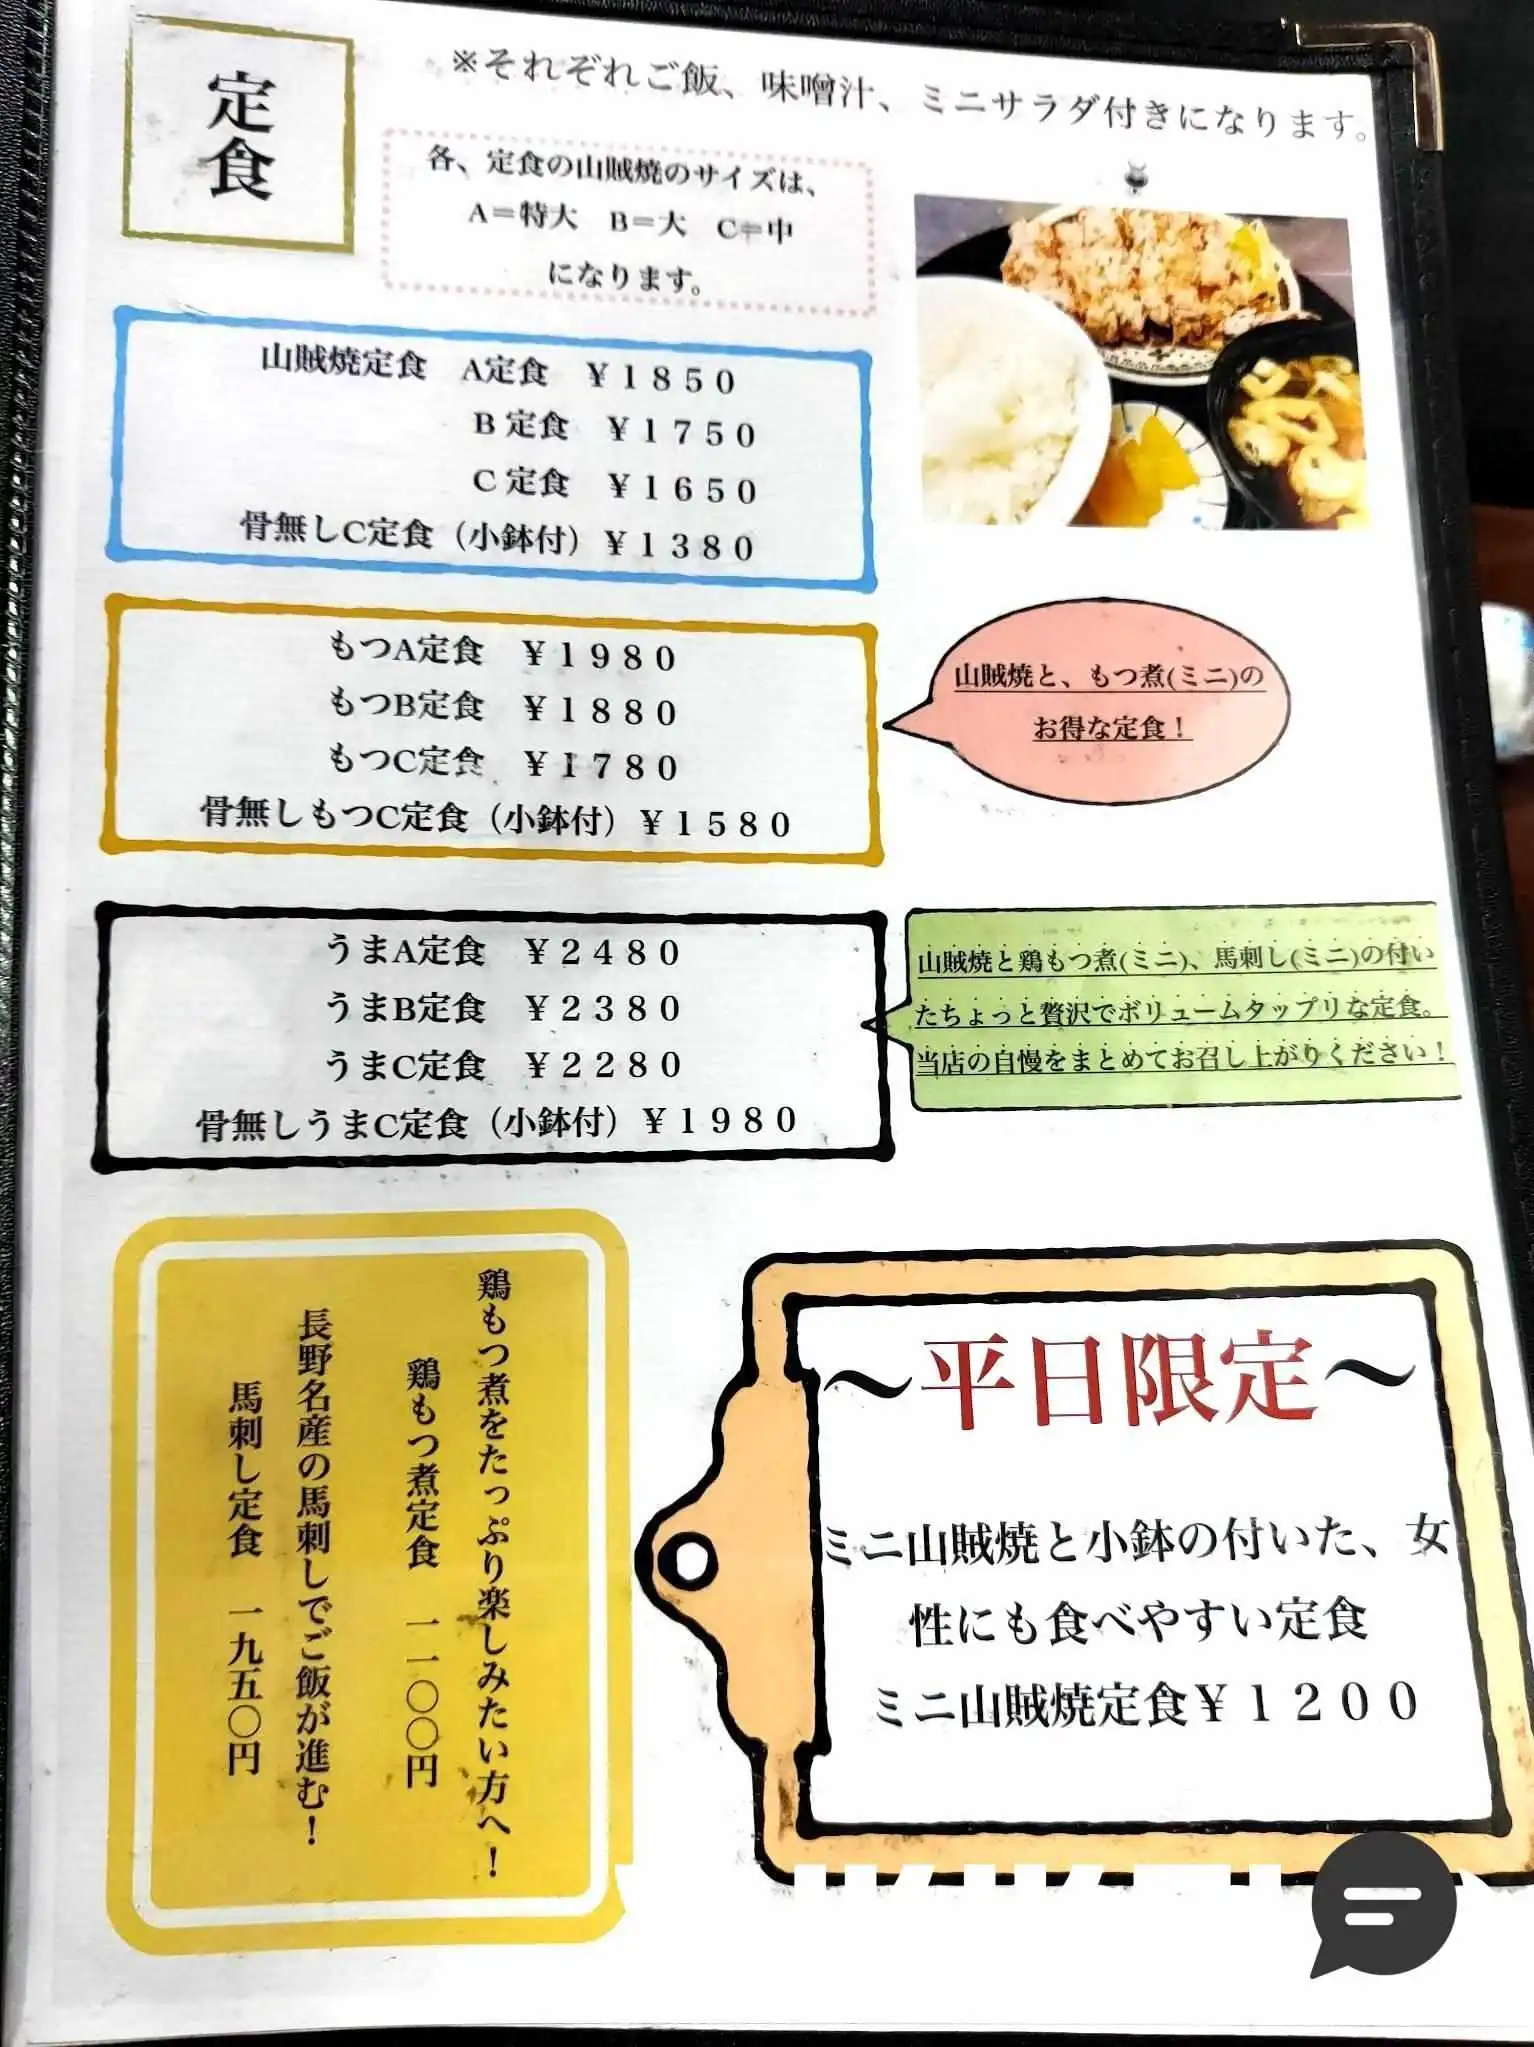 定食
※それぞれご飯、味噌汁、ミニサラダ付きになります。
各、定食の山賊焼のサイズは、
A＝特大　B＝大　C＝中
になります。
山賊焼定食　A定食　￥１８５０
B 定食　￥１７５０
C 定食　￥１６５０
骨無しC定食（小鉢付）￥１３８０
もつA定食　￥１９８０
もつB定食　￥１８８０
もつC定食　￥１７８０
骨無しもつC定食（小鉢付）￥１５８０
山賊焼と、もつ煮(ミニ)の
お得な定食！
うまA定食　￥２４８０
うまB定食　￥２３８０
うまC定食　￥２２８０
骨無しうまC定食（小鉢付）￥１９８０
山賊焼と鶏もつ煮(ミニ)、馬刺し(ミニ)の付い
たちょっと贅沢でボリュームタップリな定食。
当店の自慢をまとめてお召し上がりください！
鶏もつ煮をたっぷり楽しみたい方へ！
鶏もつ煮定食　一一〇〇円
長野名産の馬刺しでご飯が進む！
馬刺し定食　一九五〇円
〜平日限定〜
ミニ山賊焼と小鉢の付いた、女
性にも食べやすい定食
ミニ山賊焼定食￥１２００